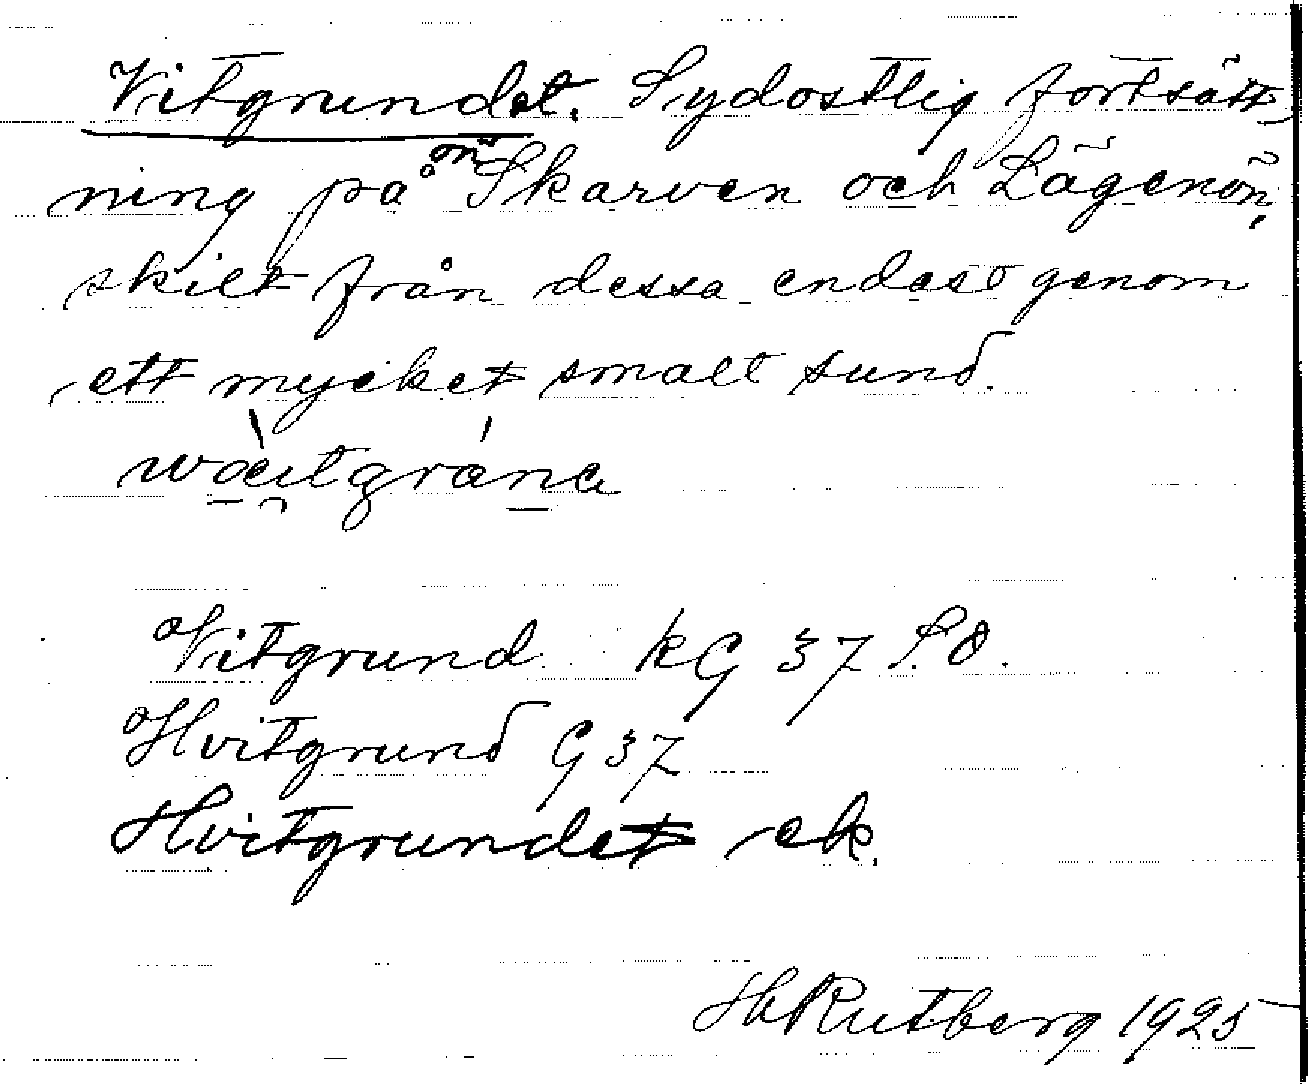 Vitgrundet. Sydostlig fortsätt-
ning på ön Skarven och Lågenön,
skilt från dessa endast genom
ett mycket smalt sund.
Vitgrund kG 37 S.O.
Hvitgrund G 37
Hvitgrundet ek.
HRutberg 1925